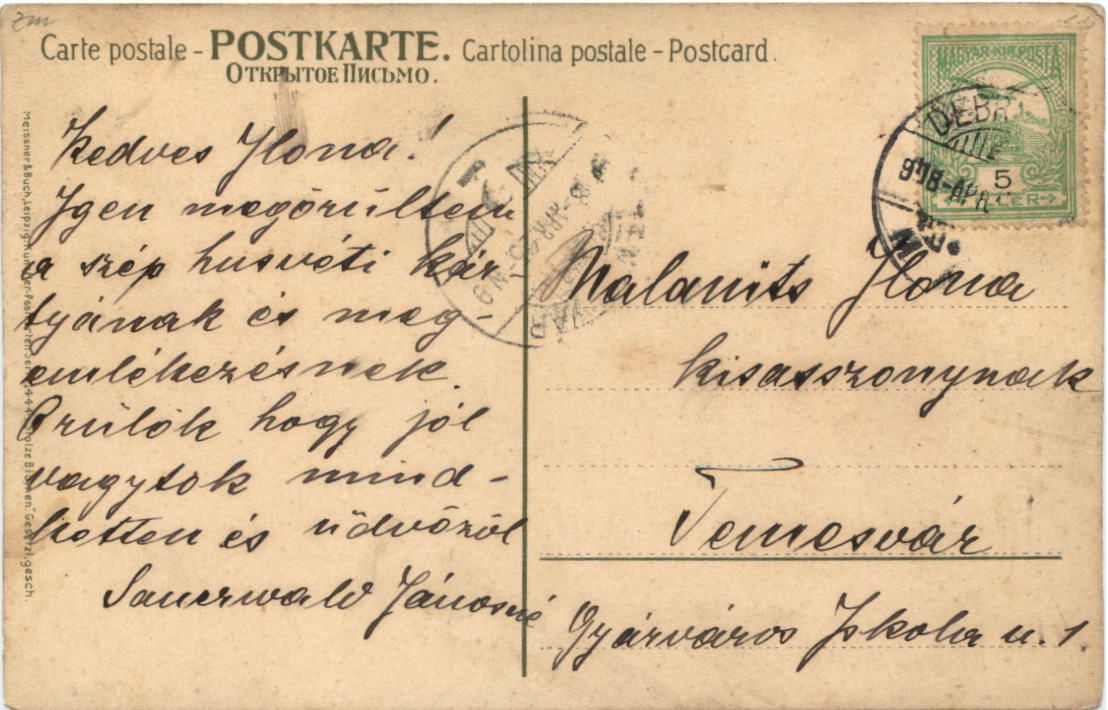 Carte postale – POSTKARTE. Cartolina postale – Postcard.
Открытое Письмо.
MAGYAR KIR. POSTA
DEBR
5
908-APR
Kedves Ilona!
Igen megörültem
a szép husvéti kár-
tyának és meg-
emlékezésnek.
Örülök hogy jól
vagytok mind-
ketten és üdvözöl
Sauerwald Jánosné
Malanits Ilona
kisasszonynak
Temesvár
Gyárváros Iskola u. 1.
Meissner & Buch, Leipzig. Künstler-Postkarten Ges. gesch.